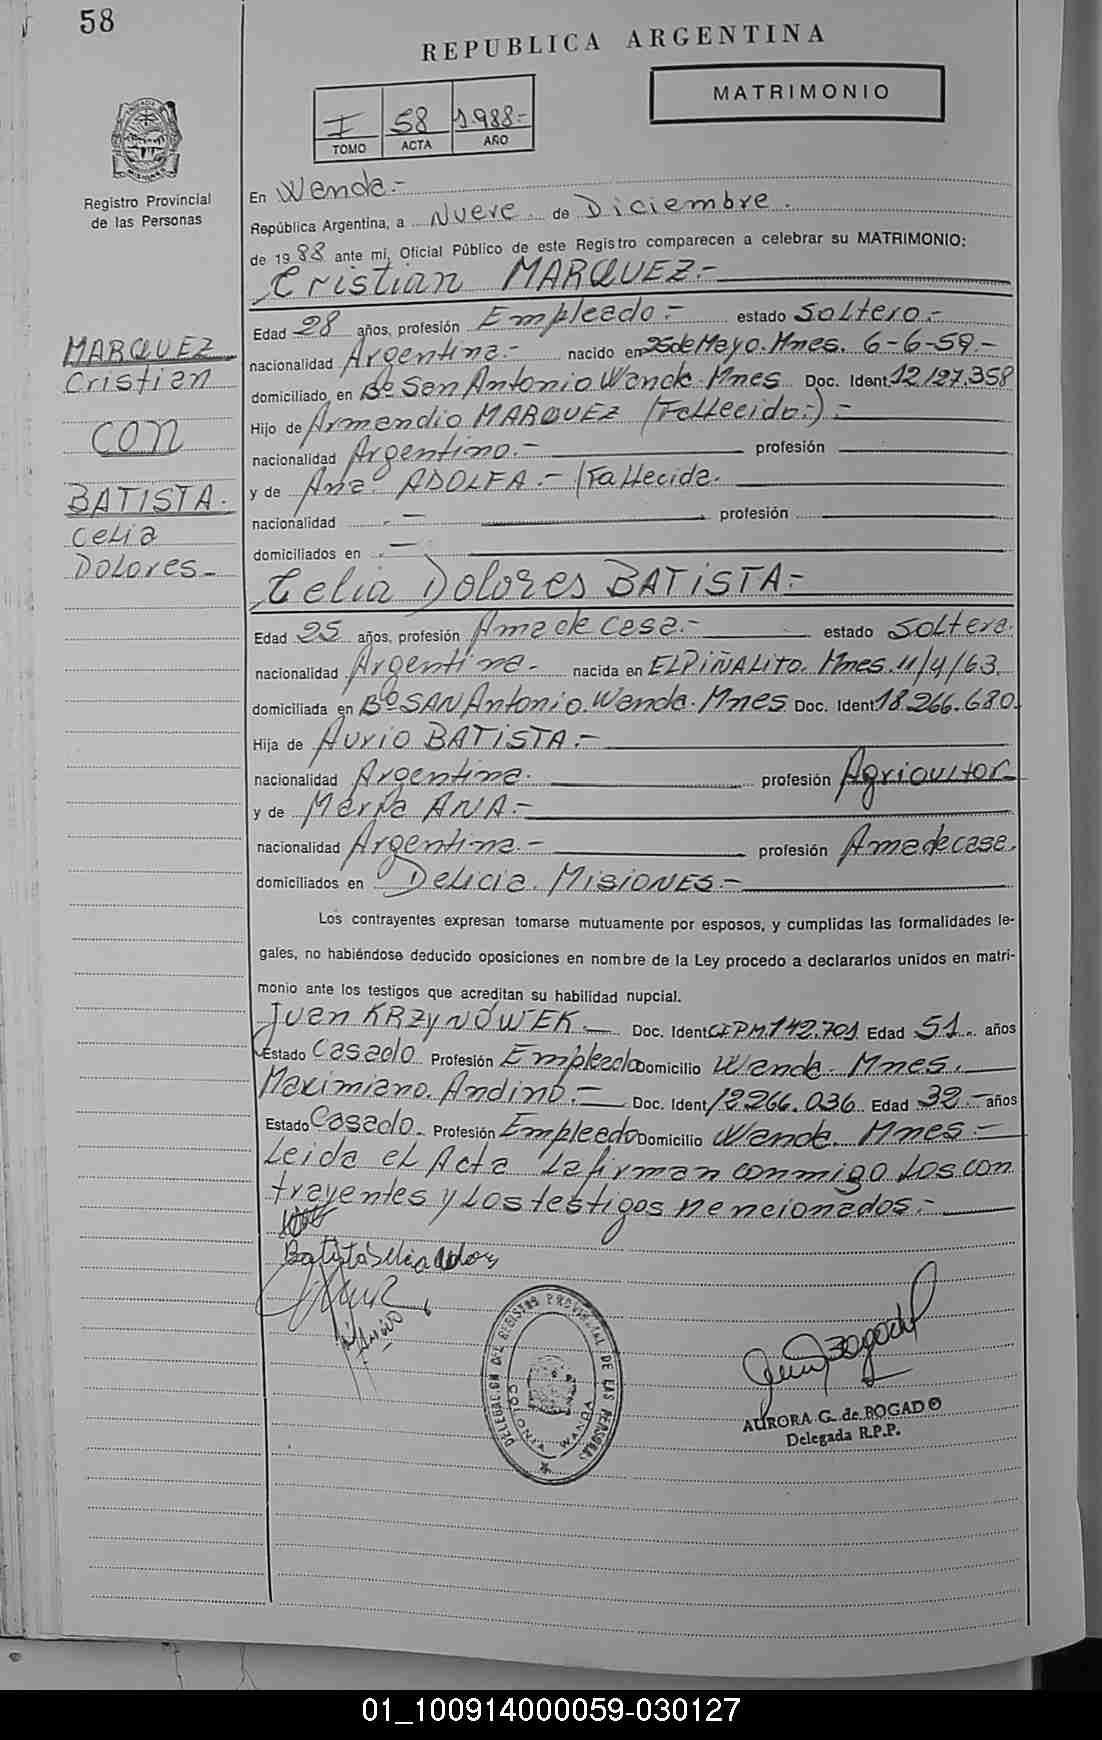 58
REPUBLICA ARGENTINA
MATRIMONIO
I 58 1988.-
TOMO ACTA AÑO
Registro Provincial
de las Personas
En Wanda.-
República Argentina, a Nueve de Diciembre.
de 1988 ante mi, Oficial Público de este Registro comparecen a celebrar su MATRIMONIO:
Cristian MARQUEZ.-
Edad 28 años, profesión Empleado.- estado Soltero.-
nacionalidad Argentina.- nacido en 25 de Mayo. Mnes. 6-6-59.-
domiciliado en Bº San Antonio Wanda Mnes Doc. Ident. 12.127.358
Hijo de Armendio MARQUEZ (Fallecido.-).-
nacionalidad Argentino.- profesión
y de Ana ADOLFA.- (Fallecida.
nacionalidad .- profesión
domiciliados en .-
MARQUEZ
Cristian
CON
BATISTA.
Celia
Dolores-
Celia Dolores BATISTA.-
Edad 25 años, profesión Ama de casa.- estado Soltera.
nacionalidad Argentina.- nacida en EL PIÑALITO. Mnes. 11/4/63.
domiciliada en Bº SAN Antonio. Wanda. Mnes Doc. Ident. 18.266.680.
Hija de Aurio BATISTA.-
nacionalidad Argentina. profesión Agricultor-
y de María ANA.-
nacionalidad Argentina.- profesión Ama de casa.
domiciliados en Delicia. MISIONES.-
Los contrayentes expresan tomarse mutuamente por esposos, y cumplidas las formalidades le-
gales, no habiéndose deducido oposiciones en nombre de la Ley procedo a declararlos unidos en matri-
monio ante los testigos que acreditan su habilidad nupcial.
Juan KRZYNÓWEK.- Doc. Ident. CIPM.142.701 Edad 51.. años
Estado Casado Profesión Empleado Domicilio Wanda. Mnes.
Maximiano. Andino.- Doc. Ident. 12266.036. Edad 32.- años
Estado Casado. Profesión Empleado Domicilio Wanda. Mnes.-
Leida el Acta la firman conmigo los con
trayentes y los testigos mencionados.-
DELEGACION DEL REGISTRO PROVINCIAL DE LAS PERSONAS
COLONIA WANDA
AURORA G. de BOGADO
Delegada R.P.P.
01_100914000059-030127